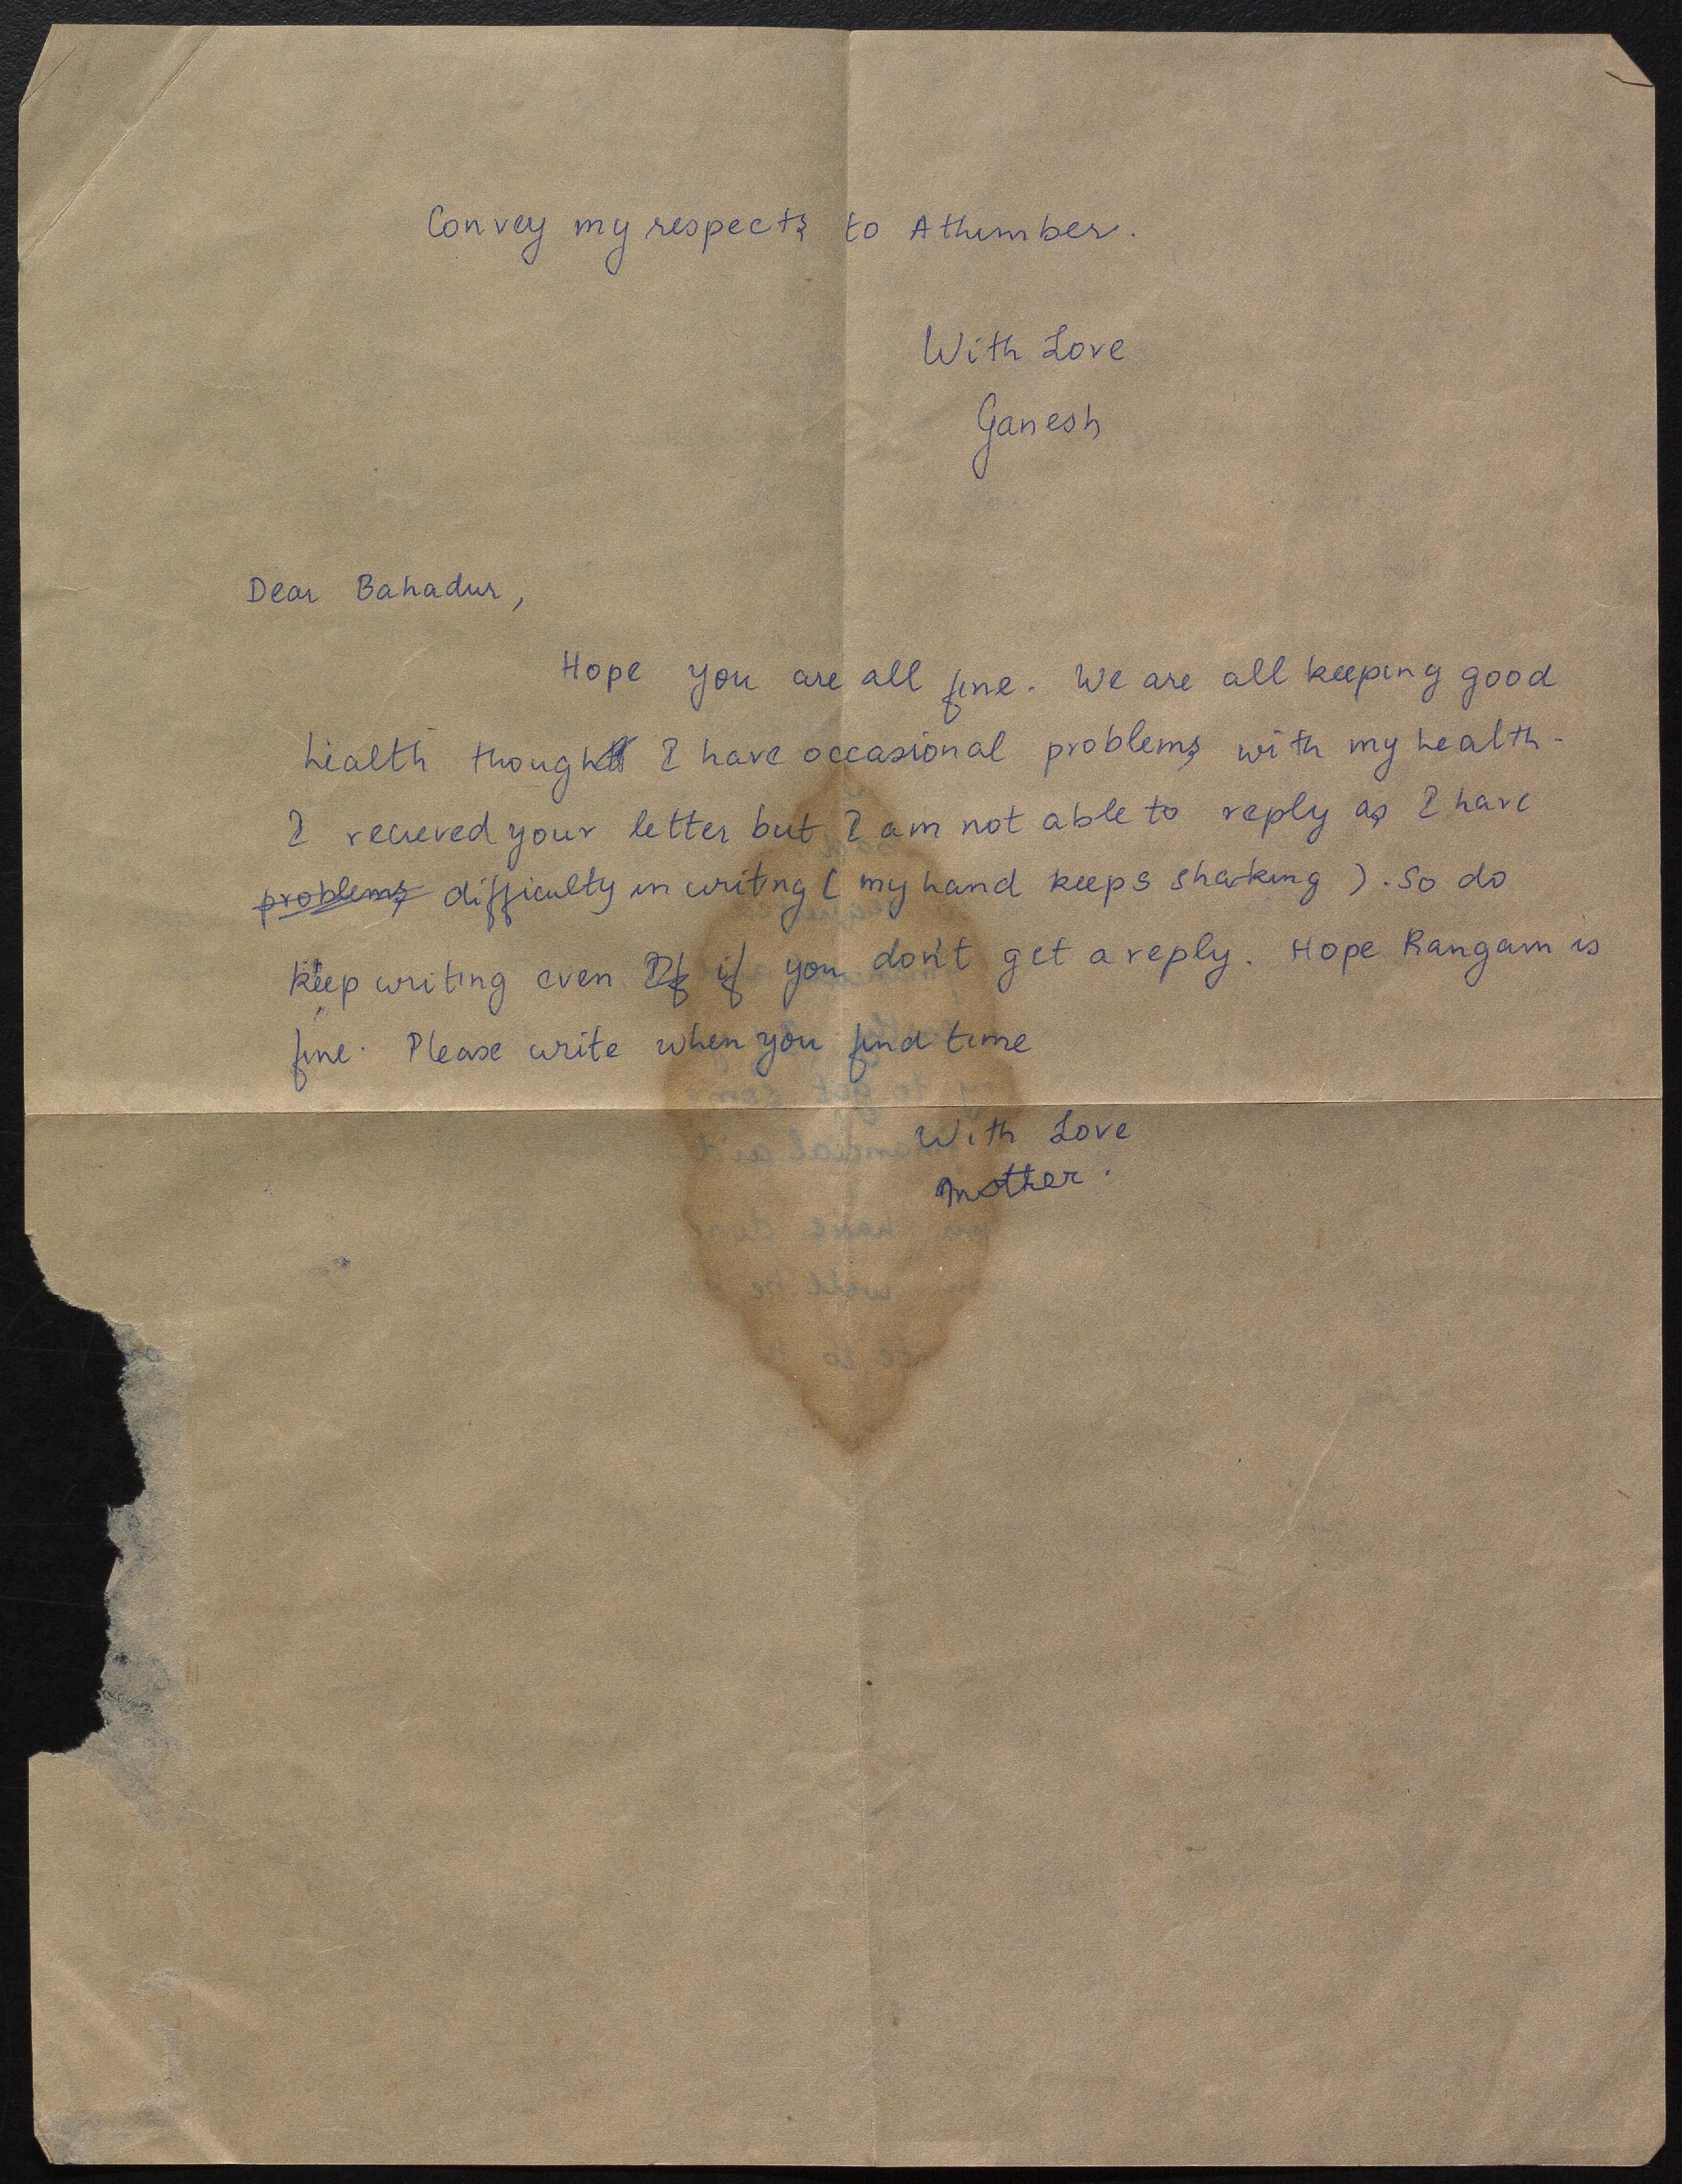 Convey my respects to Athimber.
With Love
Ganesh
Dear Bahadur,
Hope you are all fine. We are all keeping good
health though I have occasional problems with my health.
I recieved your letter but I am not able to reply as I have
problems difficulty in writing ( my hand keeps shaking ). So do
keep writing even If if you don't get a reply. Hope Rangam is
fine. Please write when you find time
With Love
Mother.